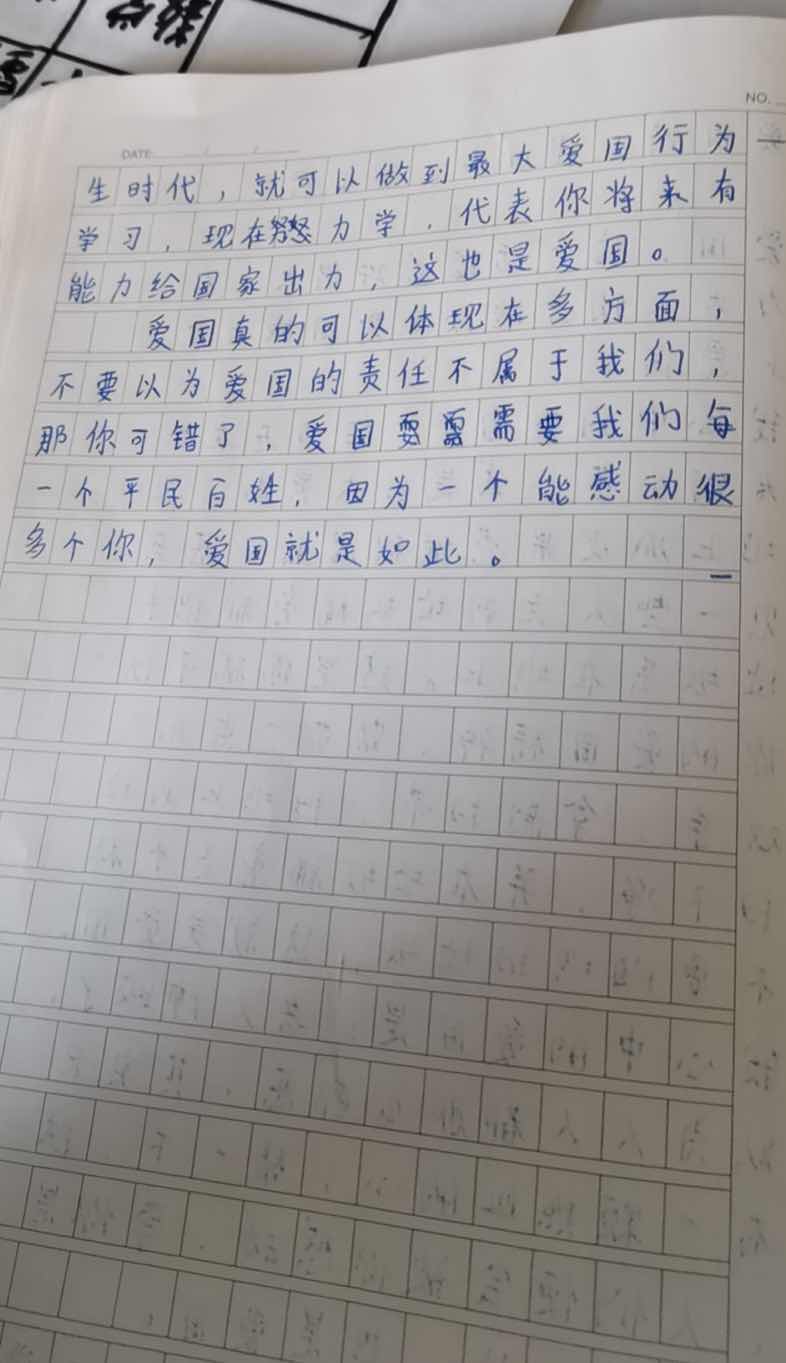 NO.
DATE
生时代，就可以做到最大爱国行为
学习，现在努力学，代表你将来有
能力给国家出力，这也是爱国。
爱国真的可以体现在多方面，
不要以为爱国的责任不属于我们，
那你可错了，爱国需要我们每
一个平民百姓，因为一个能感动很
多个你，爱国就是如此。